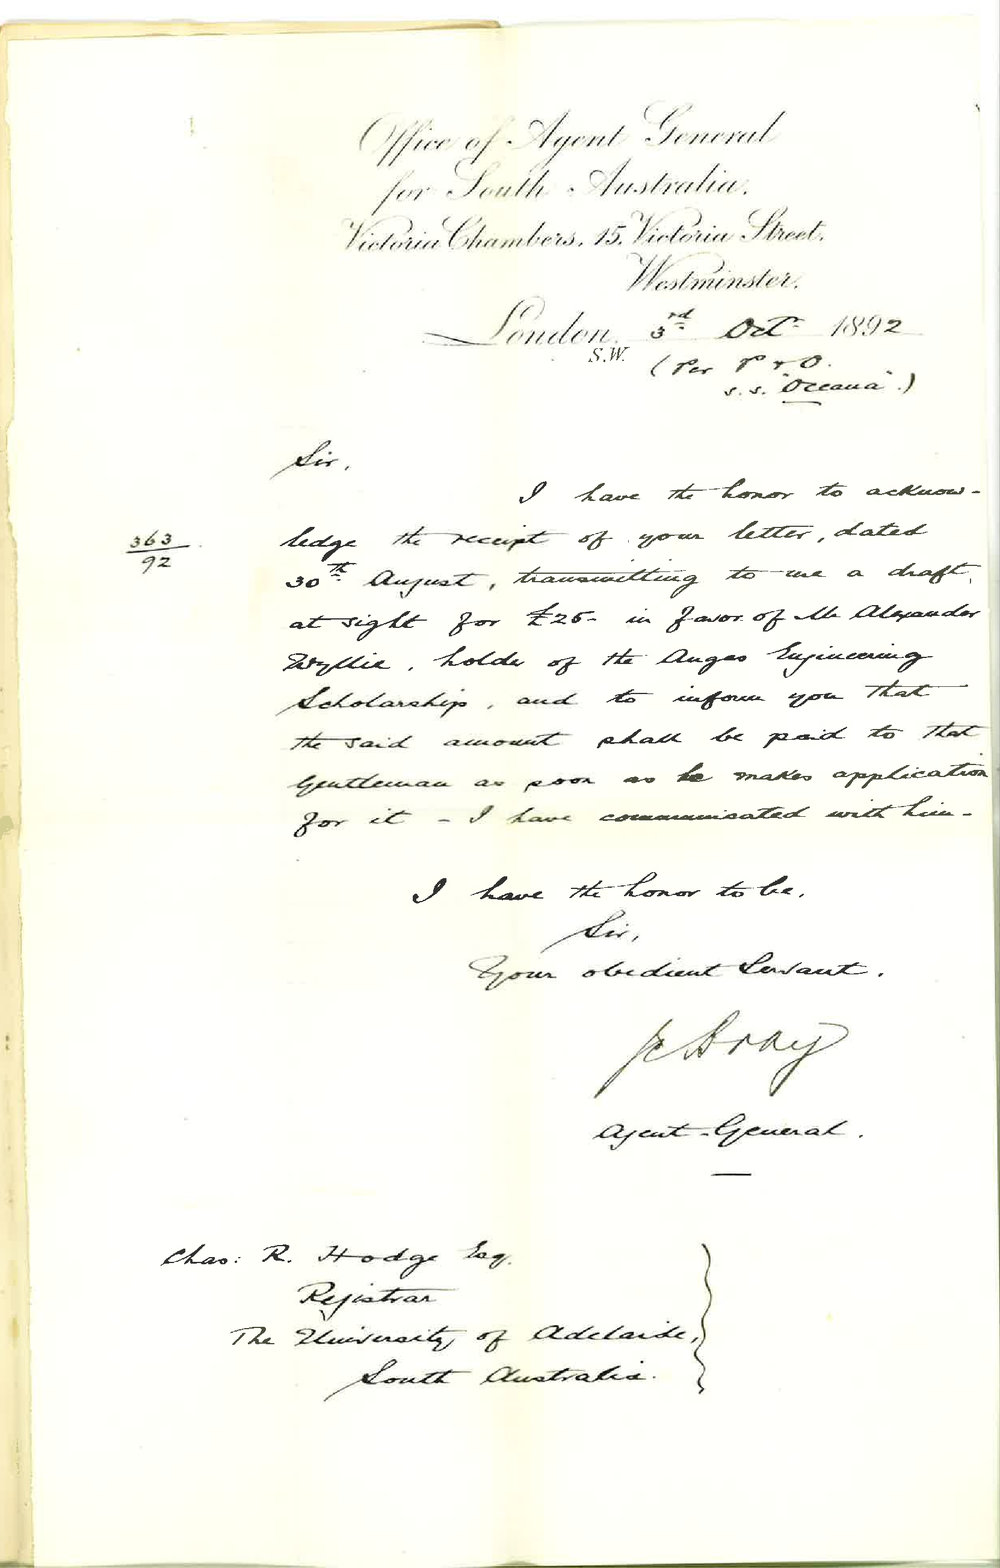 Office of Agent General
for South Australia.
Victoria Chambers, 15, Victoria Street,
Westminster,
London, 3rd Octr 1892
S.W.
(Per P & O.
s.s. "Oceana".)
Sir,
I have the honor to acknow-
363
92
ledge the receipt of your letter, dated
30th August, transmitting to me a draft,
at sight for £25- in favor of Mr Alexander
Wyllie, holder of the Angas Engineering
Scholarship, and to inform you that
the said amount shall be paid to that
Gentleman as soon as he makes application
for it - I have communicated with him -
I have the honor to be,
Sir,
Your obedient Servant.
JC Bray
Agent-General.
Chas: R. Hodge Esq.
Registrar
The University of Adelaide,
South Australia.